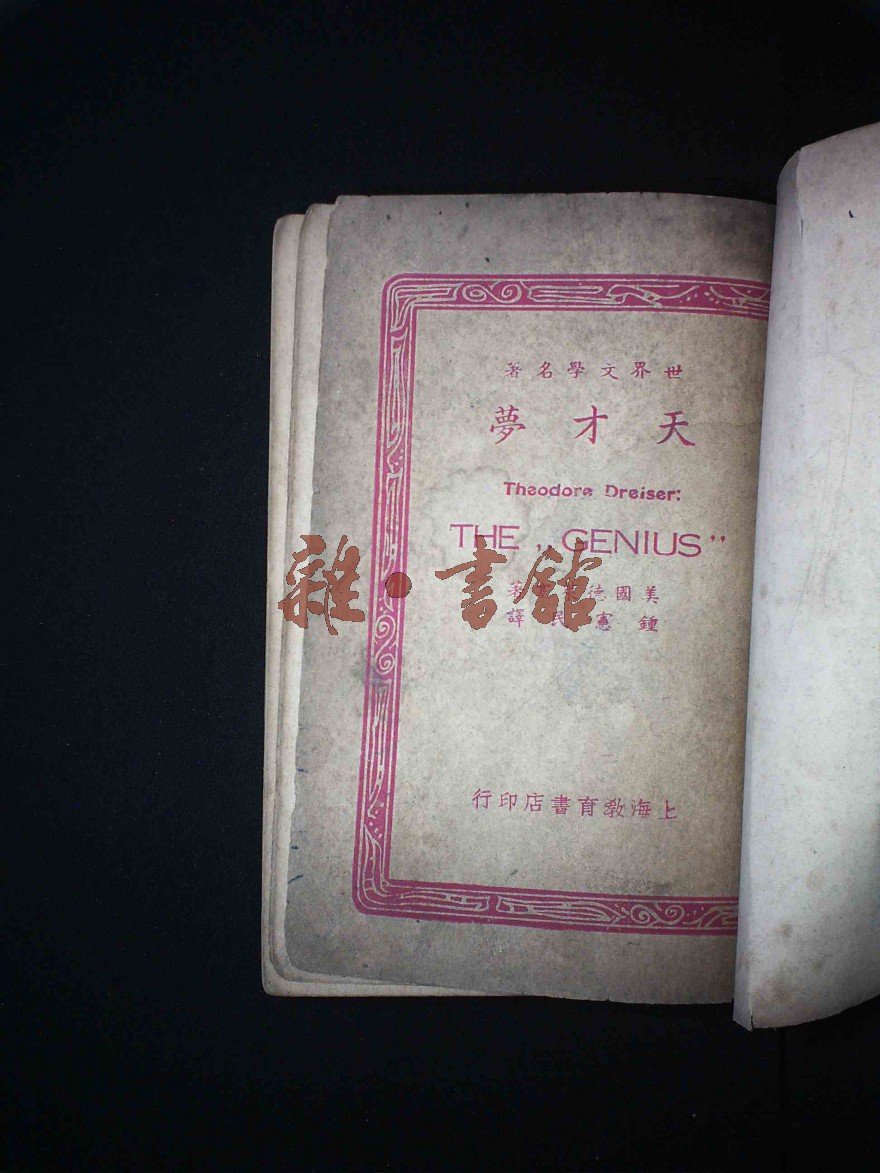 世界文學名著
天才夢
Theodore Dreiser:
THE „GENIUS"
美國德 著
鍾憲民譯
上海教育書店印行
雜·書館